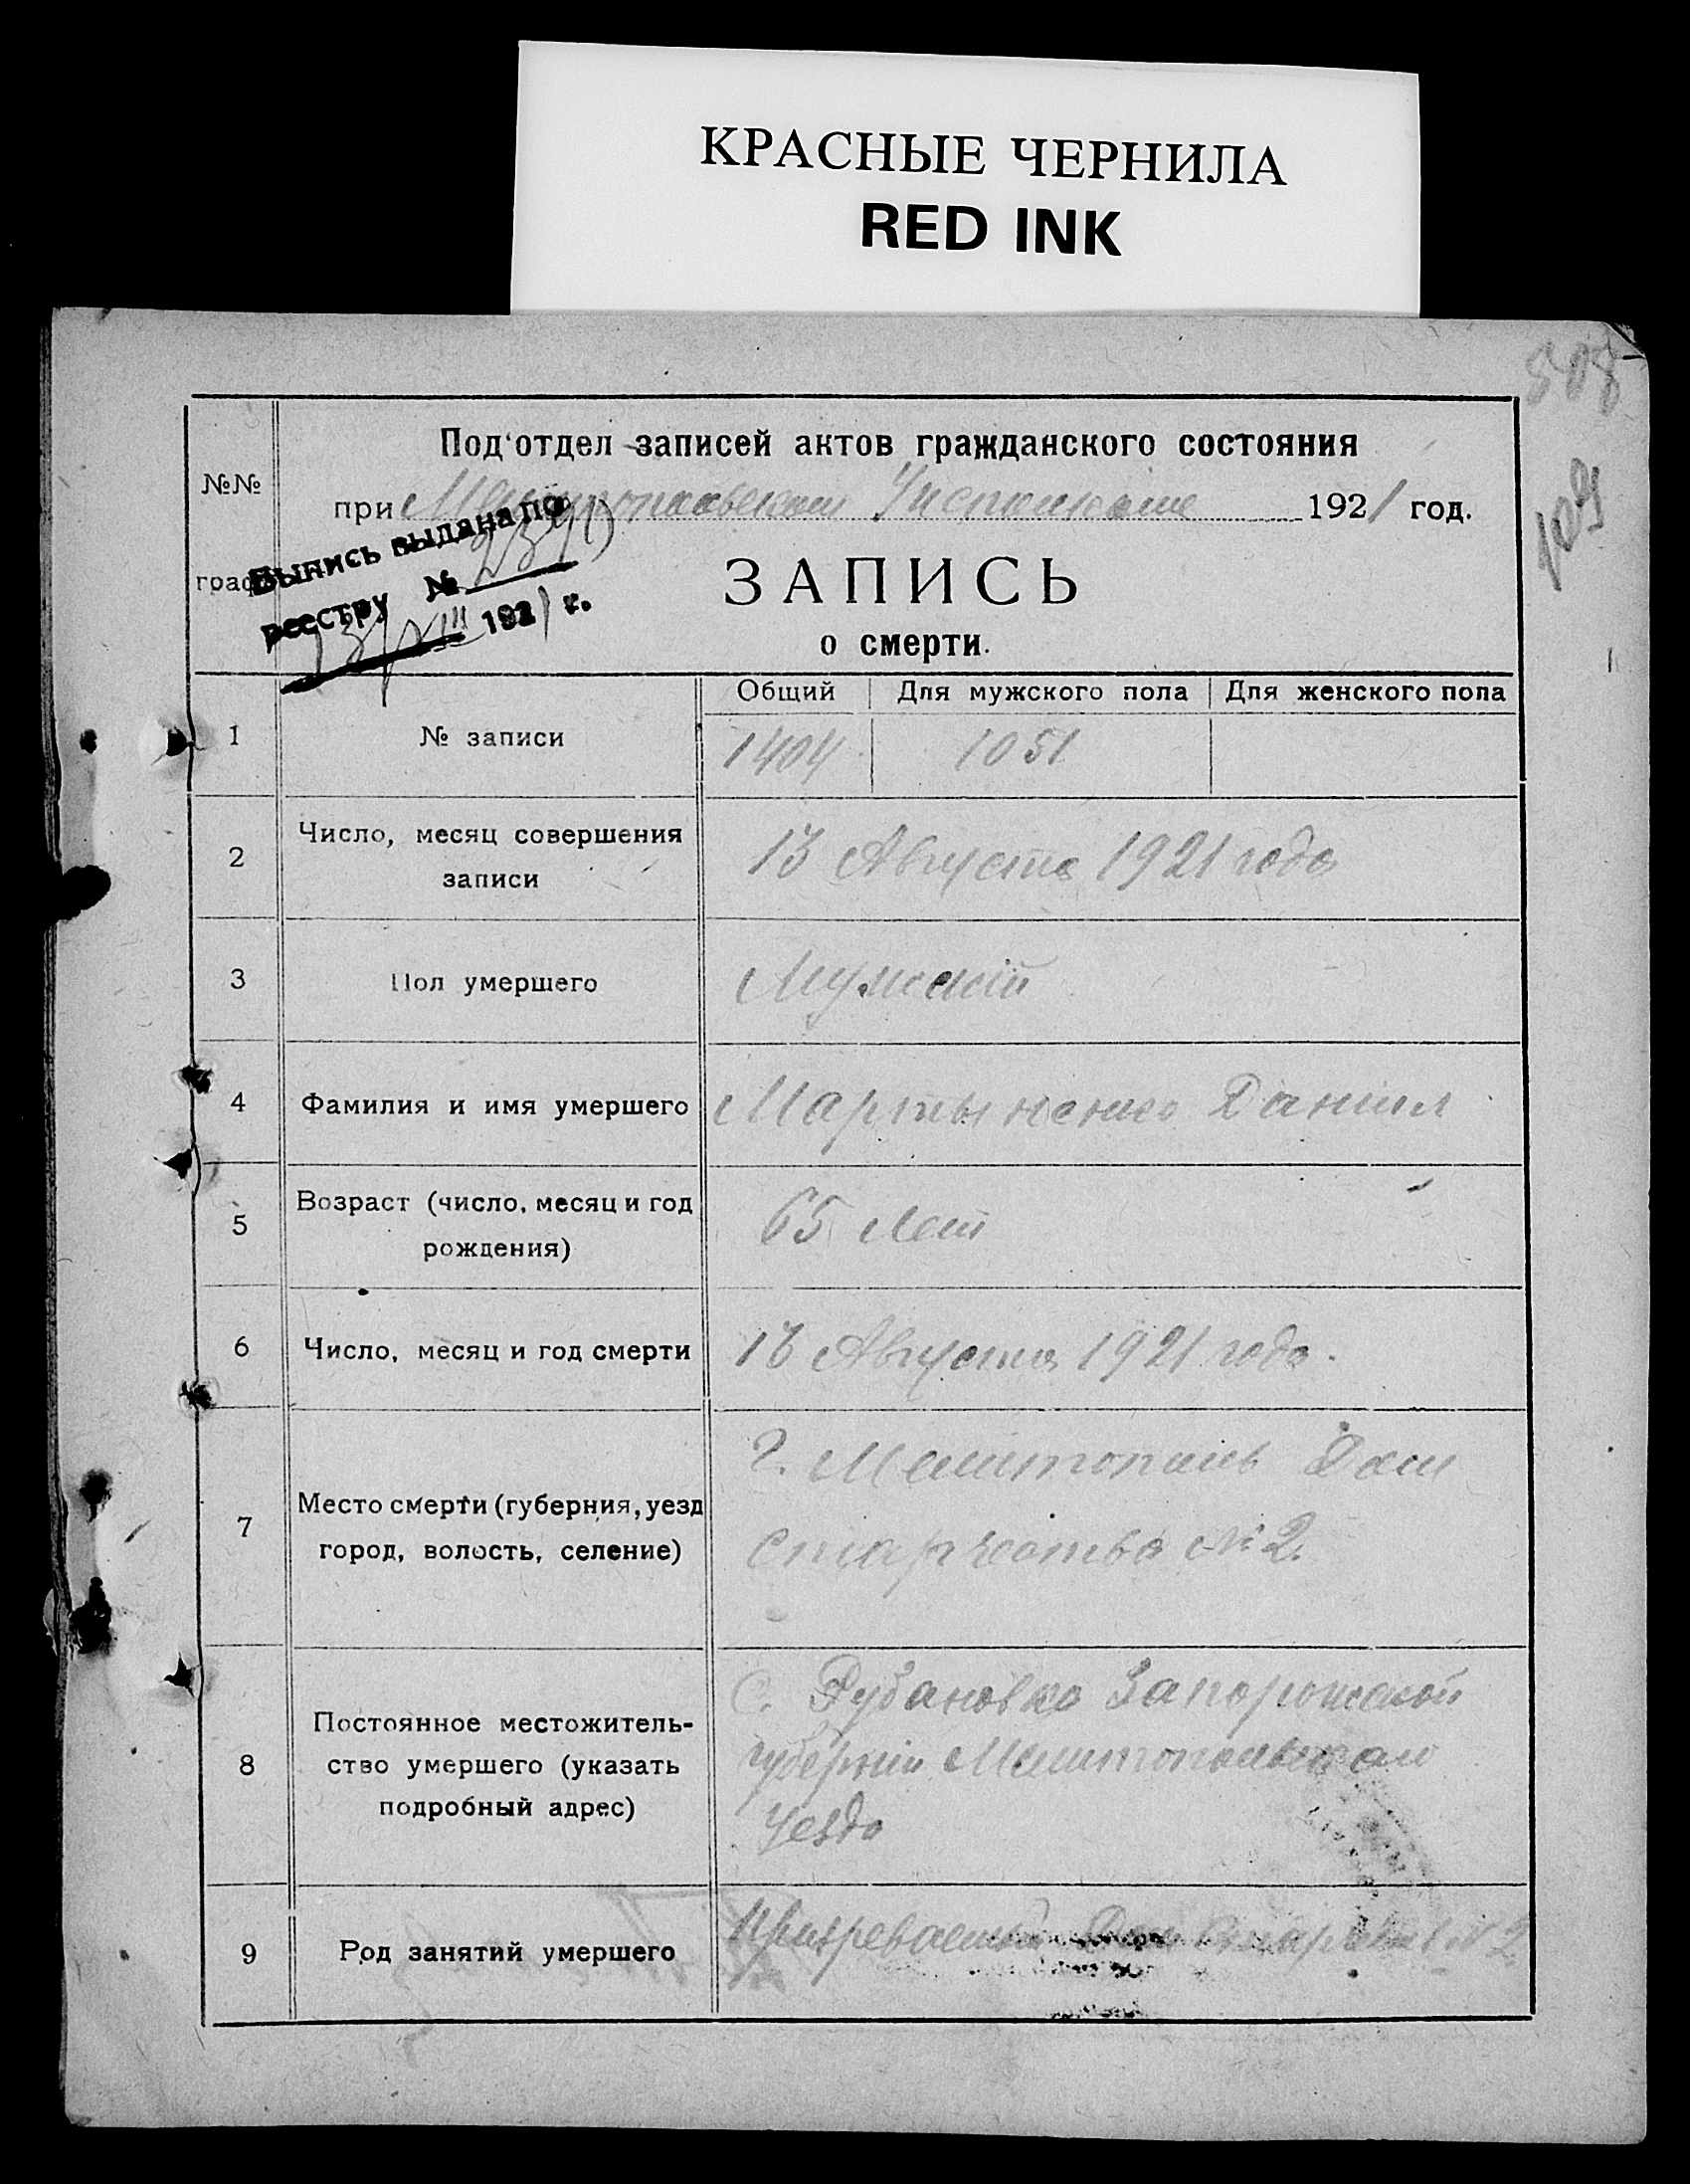 КРАСНЫЕ ЧЕРНИЛА
RED INK
508
109
Под'отдел записей актов гражданского состояния
№№
при Мелитопольском Исполкоме 1921 год.
граф
Выпись выдана по
реестру №
13/VIII 1921 г.
ЗАПИСЬ
о смерти.
Общий Для мужского пола Для женского пола
1 № записи 1404 1051
2 Число, месяц совершения
записи
13 Августа 1921 года
3 Пол умершего Мужской
4 Фамилия и имя умершего Мартыненко Даниил
5 Возраст (число, месяц и год
рождения)
65 лет
6 Число, месяц и год смерти Августа 1921 года.
7 Место смерти (губерния, уезд
город, волость, селение)
г. Мелитополь Дом
старчества № 2.
8 Постоянное местожитель-
ство умершего (указать
подробный адрес)
С. Рубановка Запорожской
губернии Мелитопольском
уезда
9 Род занятий умершего Призреваемый Дом № 2